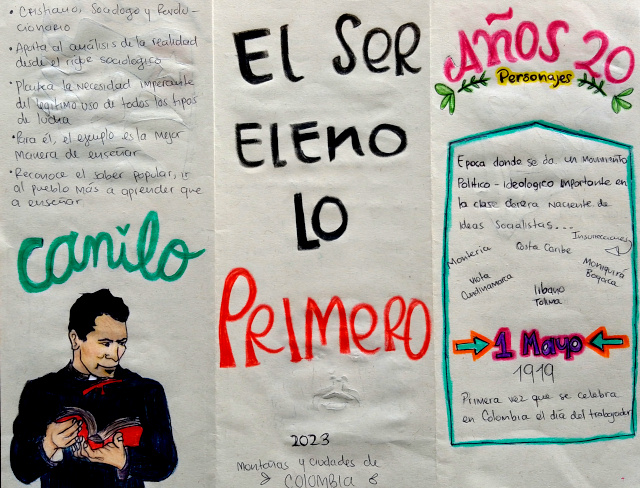 • Cristiano, Sociologo y Revolu-
cionario
• Aporta al análisis de la realidad
desde el rigor sociológico
• Plantea la necesidad imperante
del legitimo uso de todos los tipos
de lucha
• Para él, el ejemplo es la mejor
manera de enseñar
• Reconoce el saber popular, ir
al pueblo más a aprender que
a enseñar
Camilo
El Ser
Eleno
Lo
Primero
2023
Montañas y ciudades de
COLOMBIA
Años 20
Personajes
Epoca donde se da un movimiento
Politico - ideologico importante en
la clase obrera Naciente de
ideas Socialistas...
Insurrecciones
Monteria
Costa Caribe
Moniquirá
Boyaca
Viota
Cundinamarca
libano
Tolima
1 Mayo
1919
Primera vez que se celebra
en Colombia el dia del trabajador